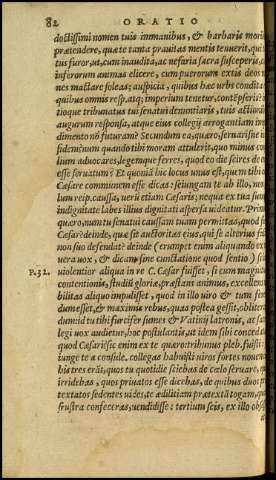 82 ORATIO
doctissimi nomen tuis immanibus, & barbaris moris
prætendere, quæ te tanta prauitas mentis tenuerit, qui
tus furor, ut, cum inaudita, ac nefaria sacra susceperis, c
inferorum animas elicere, cum puerorum extis deos
nes mactare soleas; auspicia, quibus hæc urbs condita
quibus omnis resp. atq; imperium tenetur, contēpseris?
tioque tribunatus tui senatui denuntiaris, tuis actio
augurum responsa, atque eius collegij arrogantiam im
dimento nō futuram? Secundum ea, quæro, seruarisne
fidem? num quando tibi moram attulerit, quo minus con
lium aduocares, legemque ferres, quod eo die scires de
esse seruatum? Et quoniā hic locus unus est, quem tibi
Cæsare communem esse dicas: seiungam te ab illo, non
lum resp. caussa, uerù etiam Cæsaris; ne qua ex tua sum
indignitate labes illius dignitati aspersa uideatur. Prim
quæro, num tu senatui caussam tuam permittas, quod f
Cæsar? deinde, quæ sit auctoritas eius, qui se alterius fa
non suo defendat? deinde (erumpet enim aliquando ex
uera uox, & dicam sine cunctatione quod sentio) si
P.32. uiolentior aliqua in re C. Cæsar fuisset, si eum magnit
contentionis, studiū gloriæ, præstans animus, excellens
bilitas aliquo impulisset, quod in illo uiro & tum fer
dum esset, & maximis rebus, quas postea gessit, oblitera
dum: id tu tibi furcifer sumes & Vatinij latronis, ac sa
legi uox audietur, hoc postulantis, ut idem sibi conced
quod Cæsari? sic enim ex te quæro: tribunus pleb. fuisti:
iunge te a consule, collegas habuisti uiros fortes nouem
his tres erāt, quos tu quotidie sciebas de cœlo seruare, q
irridebas, quos priuatos esse dicebas, de quibus duos p
textatos sedentes uides, te ædilitiam prætextā togam, qu
frustra confeceras, uendidisse: tertium scis, ex illo obse